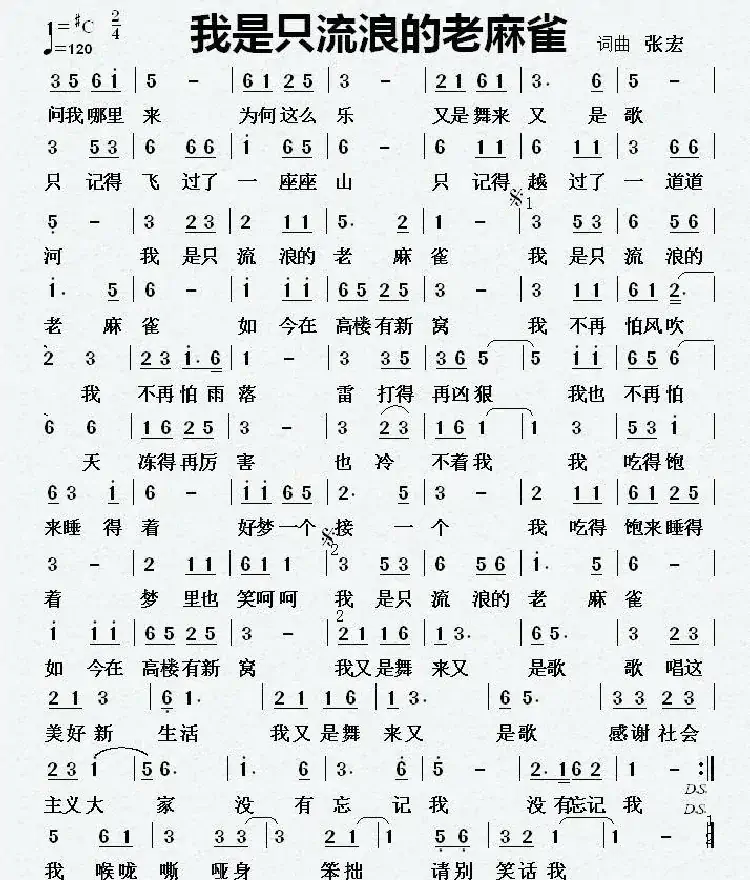 1=#C 2/4 我是只流浪的老麻雀 词曲 张宏
♩=120
3 5 6 i | 5 - | 6 1 2 5 | 3 - | 2 1 6 1 | 3. 6 | 5 - |
问我哪里 来 为何这么 乐 又是舞来 又 是 歌
3 5 3 | 6 6 6 | i 6 5 | 6 - | 6 1 1 | 6 1 1 | 3 6 6 |
只 记得 飞 过了 一 座座 山 只 记得 越 过了 一 道道
5 - | 3 2 3 | 2 1 1 | 5. 2 | 1 - | 3 5 3 | 6 5 6 |
河 我 是只 流 浪的 老 麻 雀 我 是只 流 浪的
i. 5 | 6 - | i i i | 6 5 2 5 | 3 - | 3 1 1 | 6 1 2. |
老 麻 雀 如 今在 高楼有新 窝 我 不再 怕风吹
2 3 | 2 3 i. 6 | 1 - | 3 3 5 | 3 6 5 | 5 i i | 6 5 6 |
我 不再怕 雨 落 雷 打得 再凶狠 我也 不再怕
6 6 | 1 6 2 5 | 3 - | 3 2 3 | 1 6 1 | 1 3 | 5 3 i |
天 冻得再厉 害 也 冷 不着我 我 吃得饱
6 3 i | 6 - | i i 6 5 | 2. 5 | 3 - | 2 1 1 | 6 1 2 5 |
来睡 得 着 好梦一个 接 一 个 我 吃得 饱来睡得
3 - | 2 1 1 | 6 1 1 | 3 5 3 | 6 5 6 | i. 5 | 6 - |
着 梦 里也 笑呵呵 我 是只 流 浪的 老 麻 雀
i i i | 6 5 2 5 | 3 - | 2 1 1 6 | 1 3. | 6 5. | 3 2 3 |
如 今在 高楼有新 窝 我又是舞 来又 是歌 歌 唱这
2 1 3 | 6 1. | 2 1 1 6 | 1 3. | 6 5. | 3 3 2 3 |
美好新 生活 我又是舞 来又 是歌 感谢社会
2 3 1 | 5 6. | i. 6 | 3. 6 | 5 - | 2. 1 6 2 | 1 - :||
主义大 家 没 有 忘 记 我 没 有忘记 我 D.S.
D.S.
5 6 1 | 3 3 3 | 3 2 1 | 1 5 6 | 3 2 1 | 1 - ||
我 喉咙 嘶 哑身 笨拙 请别 笑话我